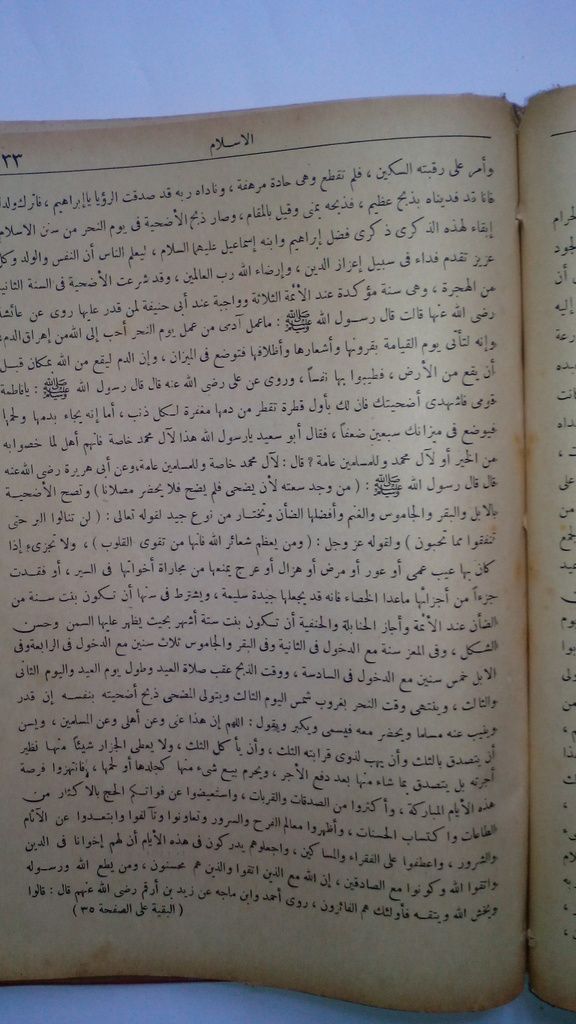 الاسلام
٣٣
وأمر على رقبته السكين ، فلم تقطع وهى حادة مرهفة ، وناداه ربه قد صدقت الرؤيا ياإبراهيم ، فاترك ولدا
فانا قد فديناه بذبح عظيم ، فذبحه بمنى وقيل بالمقام ، وصار ذبح الأضحية فى يوم النحر من سنن الاسلام
إبقاء لهذه الذكرى ذكرى فضل إبراهيم وابنه إسماعيل عليهما السلام ، ليعلم الناس أن النفس والولد وكل
عزيز تقدم فداء فى سبيل إعزاز الدين ، وإرضاء الله رب العالمين ، وقد شرعت الأضحية فى السنة الثانية
من الهجرة ، وهى سنة مؤكدة عند الأئمة الثلاثة وواجبة عند أبى حنيفة لمن قدر عليها روى عن عائشة
رضى الله عنها قالت قال رسول الله ﷺ : ماعمل آدمى من عمل يوم النحر أحب إلى الله من إهراق الدم
وإنه لتأتى يوم القيامة بقرونها وأشعارها وأظلافها فتوضع فى الميزان ، وإن الدم ليقع من الله بمكان قبل
أن يقع من الأرض ، فطيبوا بها نفساً ، وروى عن على رضى الله عنه قال قال رسول الله ﷺ : يافاطمة
قومى فاشهدى أضحيتك فان لك بأول قطرة تقطر من دمها مغفرة لكل ذنب ، أما إنه يجاء بدمها ولحمها
فيوضع فى ميزانك سبعين ضعفاً ، فقال أبو سعيد يارسول الله هذا لآل محمد خاصة فانهم أهل لما خصوا به
من الخير أو لآل محمد وللمسلمين عامة ؟ قال : لآل محمد خاصة وللمسلمين عامة ، وعن أبى هريرة رضى الله عنه
قال قال رسول الله ﷺ : ( من وجد سعته لأن يضحى فلم يضح فلا يحضر مصلانا ) وتصح الأضحية
بالابل والبقر والجاموس والغنم وأفضلها الضأن وتختار من نوع جيد لقوله تعالى : ( لن تنالوا البر حتى
تنفقوا مما تحبون ) ولقوله عز وجل : ( ومن يعظم شعائر الله فانها من تقوى القلوب ) ، ولا تجزىء إذا
كان بها عيب عمى أو عور أو مرض أو هزال أو عرج يمنعها من مجاراة أخواتها فى السير ، أو فقدت
جزءاً من أجزائها ماعدا الخصاء فانه قد يجعلها جيدة سليمة ، ويشترط فى سنها أن تكون بنت سنة من
الضأن عند الأئمة وأجاز الحنابلة والحنفية أن تكون بنت ستة أشهر بحيث يظهر عليها السمن وحسن
الشكل ، وفى المعز سنة مع الدخول فى الثانية وفى البقر والجاموس ثلاث سنين مع الدخول فى الرابعة وفى
الابل خمس سنين مع الدخول فى السادسة ، ووقت الذبح عقب صلاة العيد وطول يوم العيد واليوم الثانى
والثالث ، وينتهى وقت النحر بغروب شمس اليوم الثالث ويتولى المضحى ذبح أضحيته بنفسه إن قدر
وينيب عنه مسلما ويحضر معه فيسمى ويكبر ويقول : اللهم إن هذا عنى وعن أهلى وعن المسلمين ، ويسن
أن يتصدق بالثلث وأن يهب لذوى قرابته الثلث ، وأن يأكل الثلث ، ولا يعطى الجزار شيئاً منها نظير
أجرته بل يتصدق بما شاء منها بعد دفع الأجر ، ويحرم بيع شىء منها كجلدها أو لحمها ، فانتهزوا فرصة
هذه الأيام المباركة ، وأكثروا من الصدقات والقربات ، واستعيضوا عن فواتكم الحج بالاكثار من
الطاعات واكتساب الحسنات ، وأظهروا معالم الفرح والسرور وتعاونوا وتآلفوا وابتعدوا عن الآثام
والشرور ، واعطفوا على الفقراء والمساكين ، واجعلوهم يدركون فى هذه الأيام أن لهم إخوانا فى الدين
واتقوا الله وكونوا مع الصادقين ، إن الله مع الذين اتقوا والذين هم محسنون ، ومن يطع الله ورسوله
ويخش الله ويتقه فأولئك هم الفائزون ، روى أحمد وابن ماجه عن زيد بن أرقم رضى الله عنهم قال : قالوا
( البقية على الصفحة ٣٥ )